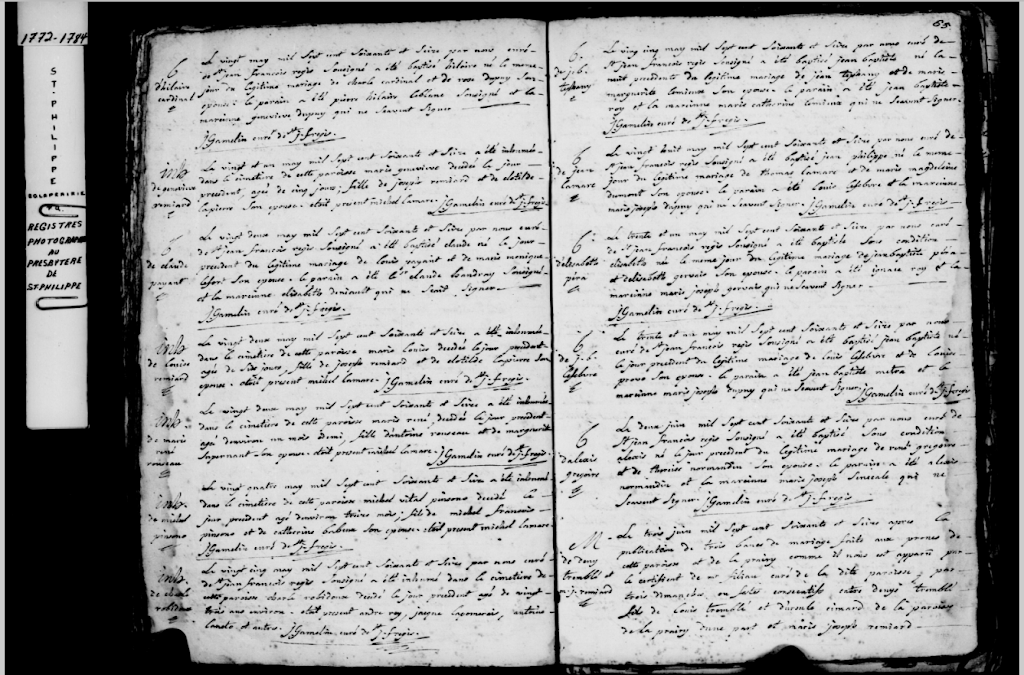 1772-1784
ST-PHILIPPE
REGISTRES
PHOTOGRAPHIÉ
AU
PRESBYTERE
DE
ST-PHILIPPE
B
d'hilaire
cardinal
Le vingt may mil Sept cent Soixante et Seize par nous curé
de St jean françois regis Sousigné a été baptisé hilaire né le meme
jour du legitime mariage de charle cardinal et de rose dupuy Son
epouse. le parain a été pierre hilaire leblanc Sousigné et la
maréinne genevieve dupuy qui ne Sçavent Signer
J Gamelin curé de St J. f. regis.
inh
de genevieve
remiard
Le vingt et un may mil Sept cent Soixante et Seize a été inhumée
dans le cimetière de cette paroisse marie genevieve decédée le jour
precedent, agée de cinq jours, fille de joseph remiard et de clotilde
lapierre Son epouse. etoit present michel lamare. J Gamelin curé de St J. f. regis
B
de claude
payant
Le vingt deux may mil Sept cent Soixante et Seize par nous curé
de St jean françois regis Sousigné a été baptisé claude né le jour
precedent du legitime mariage de louis payant et de marie monique
lefort Son epouse. le parain a été claude boudray Sousigné
et la mareinne elisabeth deniault qui ne Scait Signer
J Gamelin curé de St J. f. regis.
inh
de louise
remiard
Le vingt deux may mil Sept cent Soixante et Seize a été inhumée
dans le cimetière de cette paroisse marie louise decédée le jour precedent
agée de Six jours, fille de joseph remiard et de clotilde lapierre Son
epouse. etoit present michel lamare. J Gamelin curé de St J. f. regis.
inh
de marie
rené
rousseau
Le vingt deux may mil Sept cent Soixante et Seize a été inhumée
dans le cimetière de cette paroisse marie rené, decédée le jour precedent
agée denviron un mois demi, fille dantoine rousseau et de marguerite
Supernant Son epouse. etoit present michel lamare. J Gamelin curé de St J. f. regis.
inh
de michel
pinsono
Le vingt quatre may mil Sept cent Soixante et Seize a été inhumé
dans le cimetière de cette paroisse michel vital pinsono decédé le
jour precedent agé denviron treize mois, fils de michel françois
pinsono et de catherine babeux Son epouse. etoit present michel lamare.
J Gamelin curé de St J. f. regis.
inh
de charle
robidoux
Le vingt cinq may mil Sept cent Soixante et Seize par nous curé
de St jean françois regis Sousigné a été inhumé dans le cimetière de
cette paroisse charle robidoux decédé le jour precedent agé de vingt
trois ans environ. etoit present andre roy, jacque, antoine
et autres. J Gamelin curé de St J. f. regis.
65.
B
de j. b.
Le vingt cinq may mil Sept cent Soixante et Seize par nous curé de
St jean françois regis Sousigné a été baptisé jean baptiste né la
nuit precedente du legitime mariage de jean et de marie
marguerite lomieux Son epouse. le parain a été jean baptiste
roy et la mareinne marie catherine lomieux qui ne Sçavent Signer.
J Gamelin curé de St J. f. regis.
B
de jean
lamare
Le vingt huit may mil Sept cent Soixante et Seize par nous curé de
St jean françois regis Sousigné a été baptisé jean philippe né le meme
jour du legitime mariage de thomas lamare et de marie magdeleine
dumont Son epouse. le parain a été louis lefebvre et la mareinne
marie joseph dupuy qui ne Sçavent Signer. J Gamelin curé de St J. f. regis
B
delisabeth
Le trente et un may mil Sept cent Soixante et Seize par nous curé
de St jean françois regis Sousigné a été baptisée Sous condition
elisabeth née le meme jour du legitime mariage de jean baptiste
et delisabeth gervais Son epouse. le parain a été ignace roy et la
mareinne marie joseph gervais qui ne Sçavent Signer.
J Gamelin curé de St J. f. regis.
B
de j. b.
lefebvre
Le trente et un may mil Sept cent Soixante et Seize par nous
curé de St jean françois regis Sousigné a été baptisé jean baptiste né
le jour precedent du legitime mariage de louis lefebvre et de louise
Son epouse. le parain a été jean baptiste et la
mareinne marie joseph dupuy qui ne Sçavent Signer. J Gamelin curé de St J. f. regis
B
dalexis
gregoire
Le deux juin mil Sept cent Soixante et Seize par nous curé de
St jean françois regis Sousigné a été baptisé Sous condition
alexis né le jour precedent du legitime mariage de rené gregoire
et de therese normandin Son epouse. le parain a été alexis
normandin et la mareinne marie joseph Senecale qui ne
Sçavent Signer. J Gamelin curé de St J. f. regis.
M
de deny
tremblé et
m. j. remiard
Le trois juin mil Sept cent Soixante et Seize apres la
publication de trois bancs de mariage faite aux prones de
cette paroisse et de la prairy comme il nous est apparu par
le certificat de mr filiau curé de la dite paroisse, par
trois dimanches ou fêtes consecutifs entre denys tremblé
fils de louis tremblé et dursule cimard de la paroisse
de la prairy dune part et marie joseph remiard